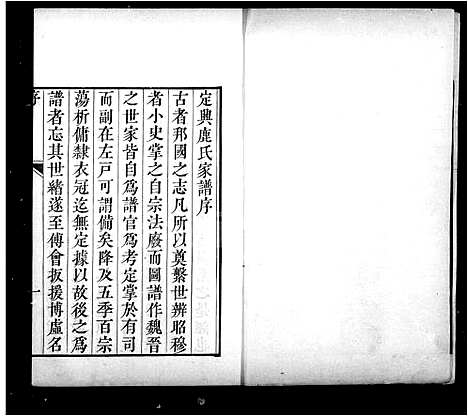 定興鹿氏家譜序
古者邦國之志凡所以奠繫世辨昭穆
者小史掌之自宗法廢而圖譜作魏晉
之世家皆自爲譜官爲考定掌於有司
而副在左戸可謂備矣降及五季百宗
蕩析傭隸衣冠迄無定據以故後之爲
譜者忘其世緒遂至傅會扳援博虛名
序
一